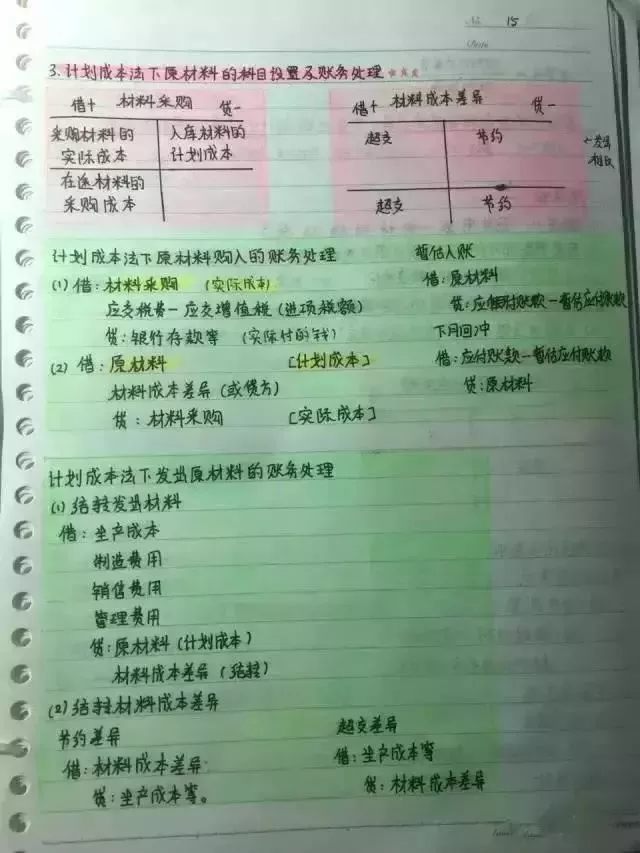 No. 15
Date
3.计划成本法下原材料的科目设置及账务处理 ★★★
借+ 材料采购 贷-
采购材料的 入库材料的
实际成本 计划成本
在途材料的
采购成本
借+ 材料成本差异 贷-
超支 节约
←发出
相反
超支 节约
计划成本法下原材料购入的账务处理
(1) 借:材料采购 (实际成本)
应交税费一应交增值税(进项税额)
贷:银行存款等 (实际付的钱)
(2) 借:原材料 [计划成本]
材料成本差异(或贷方)
贷:材料采购 [实际成本]
暂估入账
借:原材料
贷:应付账款一暂估应付账款
下月回冲
借:应付账款一暂估应付账款
贷:原材料
计划成本法下发出原材料的账务处理
(1)结转发出材料
借:生产成本
制造费用
销售费用
管理费用
贷:原材料(计划成本)
材料成本差异(结转)
(2)结转材料成本差异
节约差异
借:材料成本差异
贷:生产成本等。
超支差异
借:生产成本等
贷:材料成本差异